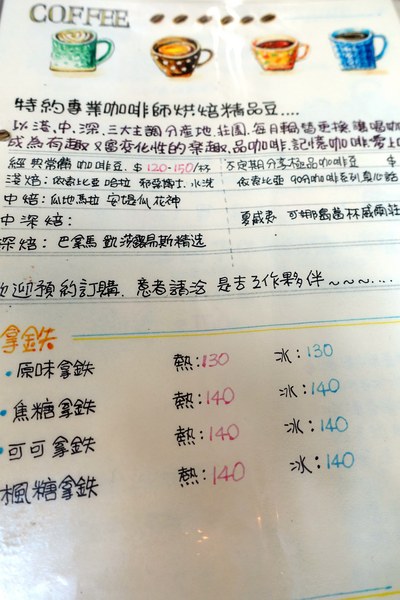 COFFEE
特約專業咖啡師烘焙精品豆....
以淺、中、深、三大主調分產地、莊園、每月輪替更換、讓喝咖
成為有趣又富變化性的樂趣、品咖啡、記憶咖啡、零上
經典常備咖啡豆、$120-150/杯 不定期分享極品咖啡豆 $
淺焙：依索比亞 哈拉 水洗 依索比亞 90分咖啡系列
中焙：瓜地馬拉 安堤瓜 花神
中深焙： 夏威夷 可娜 莊
深焙：巴拿馬 凱莎露易斯精选
歡迎預約訂購、意者請洽 是吉工作夥伴~~~....
拿鉄
•原味拿鉄 熱:130 冰:130
•焦糖拿鉄 熱:140 冰:140
•可可拿鉄 熱:140 冰:140
楓糖拿鉄 熱:140 冰:140